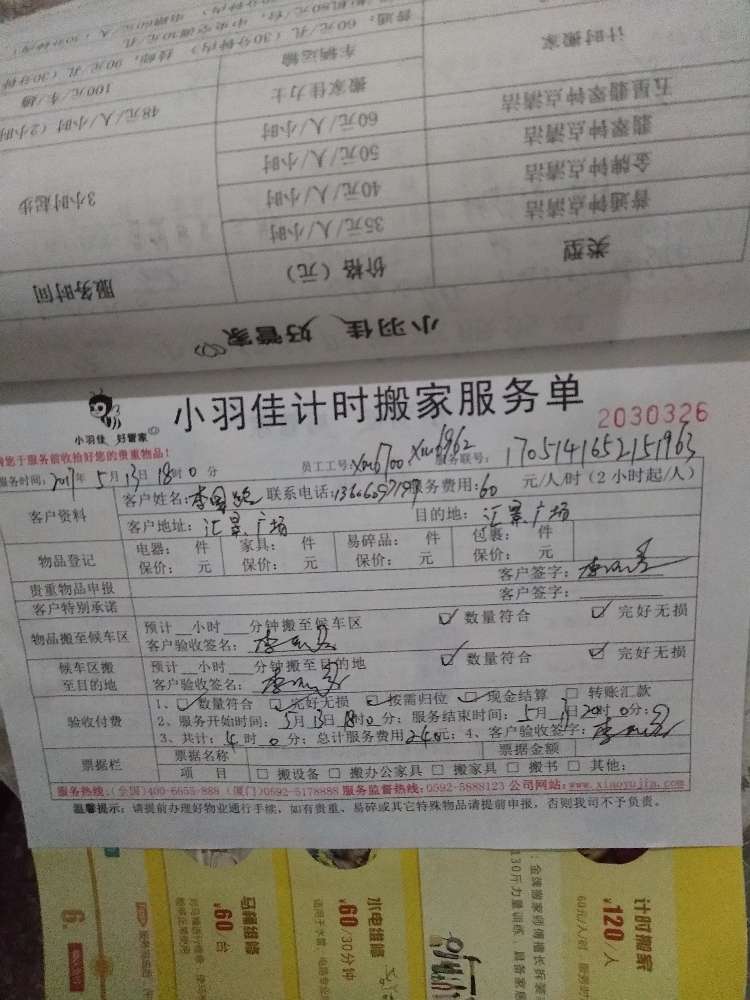 普通：60元/孔（30分钟内），技师：90元/孔（30分钟
计时搬家
车辆运输
100元/车/趟
搬家佳力士
48元/人/小时（2小时
五星翡翠钟点清洁
60元/人/小时
翡翠钟点清洁
50元/人/小时
金牌钟点清洁
40元/人/小时
3小时起步
普通钟点清洁
35元/人/小时
类型
价格（元）
服务时间
小羽佳 好管家
小羽佳 好管家
小羽佳计时搬家服务单
2030326
请您于服务前收拾好您的贵重物品！
员工工号：xm6700 xm6962 服务联号：1705141652151963
服务时间：2017年5月13日18时0分
客户资料
客户姓名： 联系电话： 服务费用：60 元/人/时（2小时起/人）
客户地址：汇景广场 目的地：汇景广场
物品登记
电器： 件 家具： 件 易碎品： 件 包裹： 件
保价： 元 保价： 元 保价： 元 保价： 元
贵重物品申报 客户签字：
客户特别承诺 客户签字：
物品搬至候车区
预计__小时__分钟搬至候车区 ☑数量符合 ☑完好无损
客户验收签名：
候车区搬至目的地
预计__小时__分钟搬至目的地 ☑数量符合 ☑完好无损
客户验收签名：
验收付费
1、☑数量符合 ☑完好无损 ☑按需归位 ☑现金结算 □转账汇款
2、服务开始时间：5月13日18时0分；服务结束时间：5月13日20时0分；
3、共计：4时0分；总计服务费用240元；4、客户验收签字：
票据栏
票据名称 票据金额
项 目 □搬设备 □搬办公家具 □搬家具 □搬书 □其他：
服务热线：(全国)400-6655-888 (厦门)0592-5178888 服务监督热线：0592-5888123 公司网站：www.xiaoyujia.com
温馨提示：请提前办理好物业通行手续，如有贵重、易碎或其它特殊物品请提前申报，否则我司不予负责。
计时搬家
¥120/人
60元/人/时
水电维修
¥60/30分钟
马桶维修
¥60/台